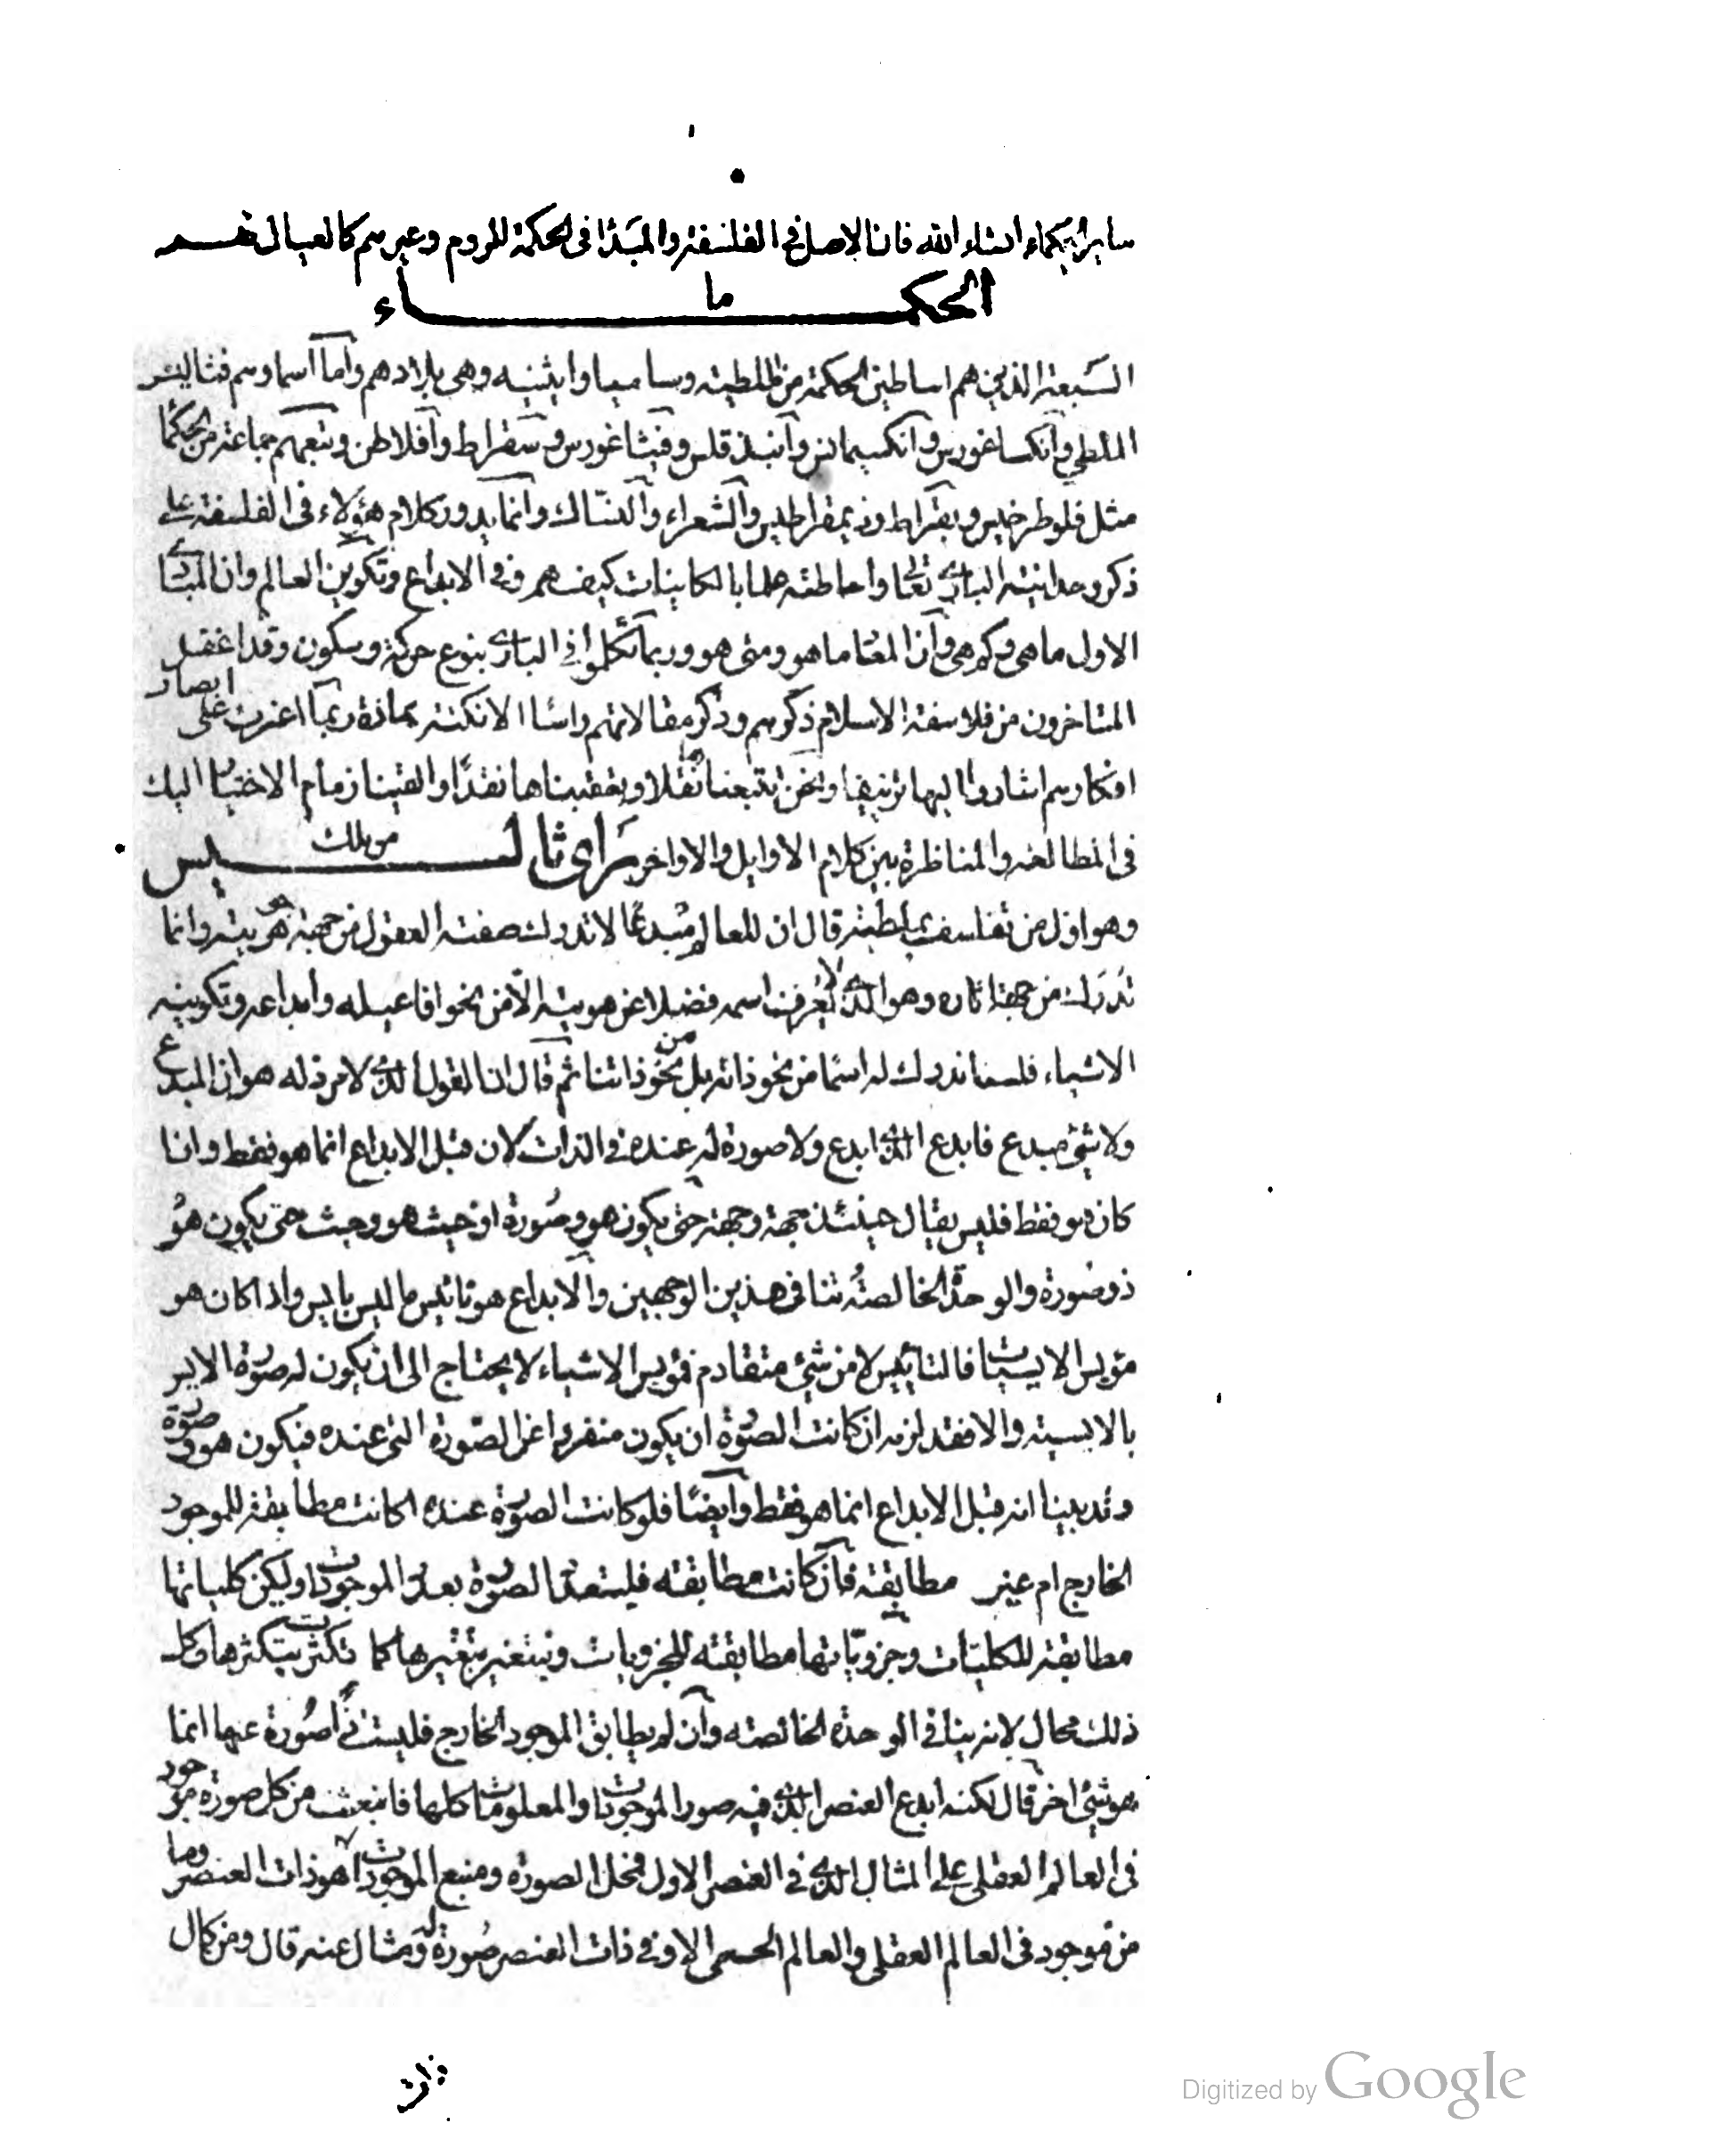 ساير الحكماء انشاء الله فان الاصل في الفلسفة والمبدأ في الحكمة للروم وغيرهم كالعيال لهم
الحكماء
السبعة الذين هم اساطين الحكمة من الملطية وساميا واثينيه وهى بلادهم وأما اسماوهم فثاليس
الملطي وانكساغورس وانكسيمانس وانبذقلس وفيثاغورس وسقراط وافلاطن وتبعهم جماعة من الحكما
مثل فلوطرخيس وبقراط وذيمقراطيس والشعراء والنساك وانما يدور كلام هؤلاء في الفلسفة على
ذكر وحدانية البارى تعالى واحاطته علما بالكاينات كيف هى وفى الابداع وتكوين العالم وان المبادى
الاول ما هى وكم هى وان المعاد ما هو ومتى هو وربما تكلموا في البارى بنوع حركة وسكون وقد اغفل
المتاخرون من فلاسفة الاسلام ذكرهم وذكر مقالاتهم راسا الا نكتة شاذة ربما اعترت على ابصار
افكارهم اشاروا اليها تزييفا ونحن تتبعناها نقلا وتعقبناها نقدا والقينا زمام الاختيار اليك
في المطالعة والمناظرة بين كلام الاوايل والاواخر راى ثاليس
وهو اول من تفلسف بملطية قال ان للعالم مبدعا لا تدرك صفته العقول من جهة هويته وانما
تدرك من جهة اثاره وهو الذى لا يعرف اسمه فضلا عن هويته الا من نحو افاعيله وابداعه وتكوينه
الاشياء فلسنا ندرك له اسما من نحو ذاته بل من نحو ذاتنا ثم قال ان القول الذى لا مرد له هو ان المبدع
ولا شئ مبدع فابدع الذى ابدع ولا صورة له عنده في الذات لان قبل الابداع انما هو فقط واذا
كان هو فقط فليس يقال حينئذ جهة وجهة حتى يكون هو وصورة او حيث هو وحيث حتى يكون هو
ذو صورة والوحدة الخالصة تنافى هذين الوجهين والابداع هو تأييس ما ليس بايس واذا كان هو
مؤيس الايسيات فالتأييس لا من شئ متقادم فمؤيس الاشياء لا يحتاج الى ان يكون له صورة الايس
بالايسية والا فقد لزمه ان كانت الصورة ان يكون منفردا عن الصورة التى عنده فيكون هو وصورة
وقد بينا انه قبل الابداع انما هو فقط وايضا فلو كانت الصورة عنده اكانت مطابقة للموجود
الخارج ام غير مطابقة فان كانت مطابقة فليتعدد الصورة بعدد الموجودات وليكن كلياتها
مطابقة للكليات وجزوياتها مطابقة للجزويات وتتغير بتغيرها كما تكثرت بتكثرها وكل
ذلك محال لانه ينافى الوحدة الخالصة وان لم يطابق الموجود الخارج فليست اذا صورة عنها انما
هو شئ اخر قال لكنه ابدع العنصر الذى فيه صور الموجودات والمعلومات كلها فانبعثت من كل صورة موجود
في العالم العقلى على المثال الذى في العنصر الاول فمحل الصورة ومنبع الموجودات هو ذات العنصر وما
من موجود في العالم العقلى والعالم الحسى الا وفى ذات العنصر صورة له ومثال عنه قال ومن كمال
ذات